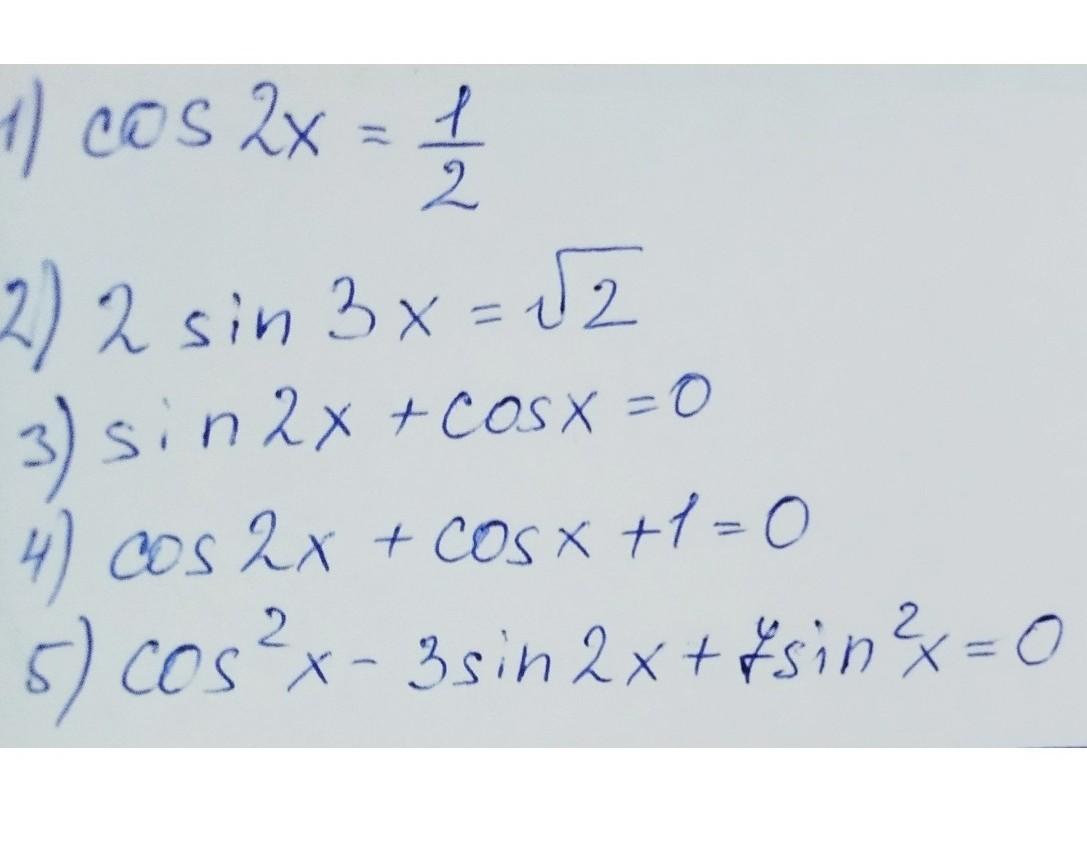 1) cos 2x = 1/2
2) 2 sin 3x = √2
3) sin 2x + cos x = 0
4) cos 2x + cos x + 1 = 0
5) cos²x - 3 sin 2x + 7 sin²x = 0